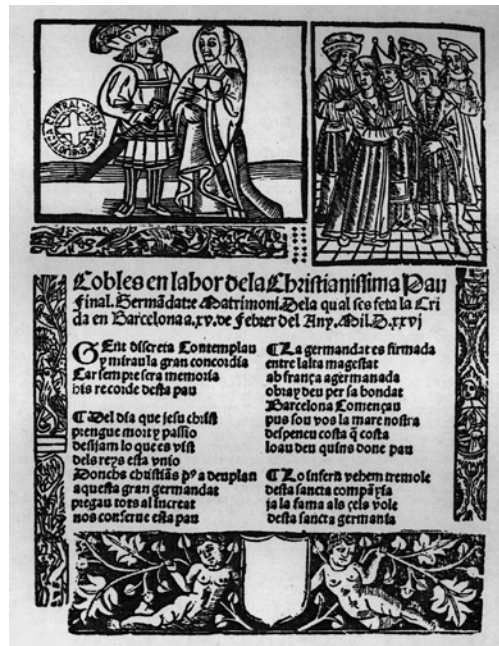 Cobles en labor dela Christianissima Pau
final. Germādat: e Matrimoni. Dela qual ses feta la Cri
da en Barcelona a. xv. de Febrer del Any. Mil. D. xxvj
GEnt discreta Contemplau
y mirau la gran concordia
Car sempre sera memoria
his recorde desta pau
¶ Del dia que jesu christ
prengue mort y passio
desijam lo que es vist
dels reys esta vnio
Donchs christiās a
aquesta gran germandat
pregau tots al increat
nos conserue esta pau
¶ La germandat es firmada
entre lalta magestat
ab frança agermanada
obra y deu per sa bondat
Barcelona Començau
pus sou vos la mare nostra
despeneu costa q̄ costa
loau deu quins done pau
¶ Lo infern vehem tremole
desta sancta compāyia
ja la fama als çels vole
desta sancta germania